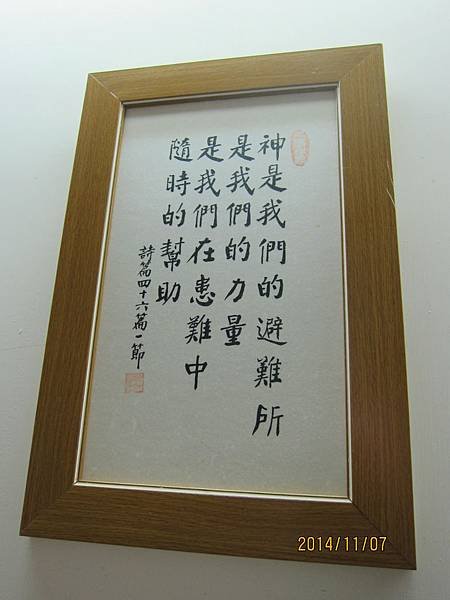 神是我們的避難所
是我們的力量
是我們在患難中
隨時的幫助
詩篇四十六篇一節
2014/11/07